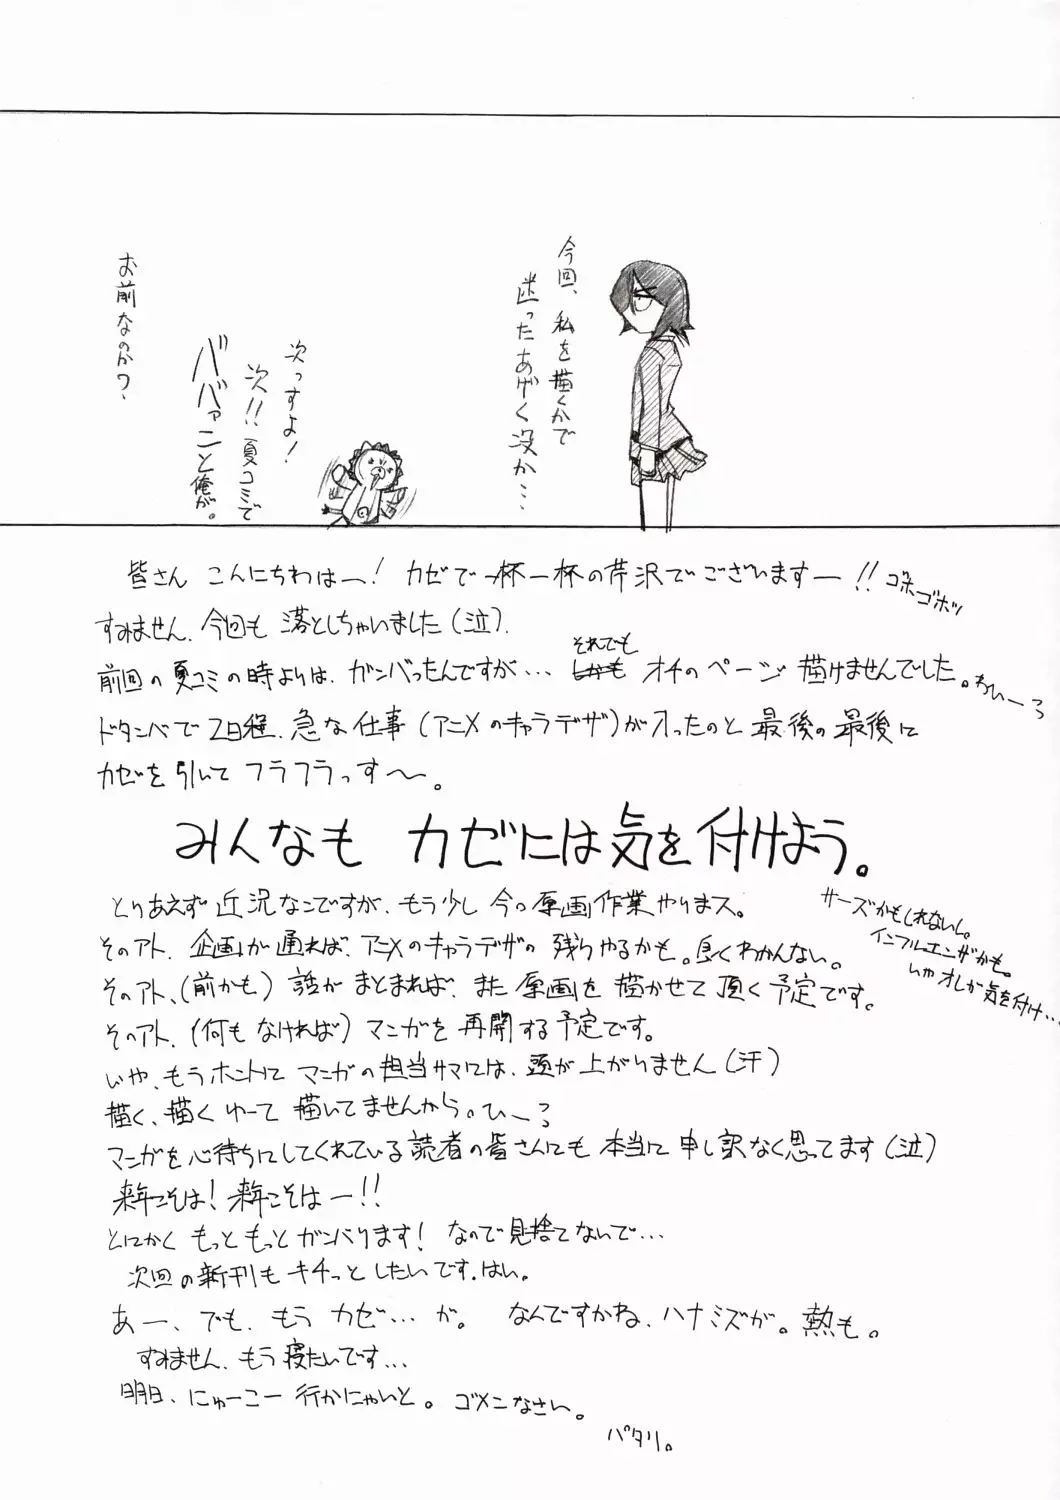 今回、私を描くかで
迷ったあげく没か…
次っすよ!
次!!夏コミで
ババァンと俺が。
お前なのか?
皆さん こんにちわはー! カゼで一杯一杯の芹沢でございますー!! ゴホゴホッ
すみません、今回も 落としちゃいました(泣).
前回の夏コミの時よりは、ガンバったんですが… それでも オチのページ 描けませんでした。わいーろ
ドタンバで 2日程、急な仕事(アニメのキャラデザ)が入ったのと 最後の最後に
カゼを引いて フラフラっす〜。
みんなも カゼには気を付けよう。
とりあえず 近況なこですが、もう少し 今の原画作業やりまス。
そのアト、企画が通れば、アニメのキャラデザの 残りやるかも。良くわかんない。
そのアト、(前かも) 話が まとまれば、また 原画を 描かせて 頂く予定です。
そのアト、(何もなければ) マンガを 再開する予定です。
サーズかもしれないし。
インフルエンザかも。
いや オレが気を付け…
いや、もうホントに マンガの担当サマには、頭が上がりません(汗)
描く、描くゆーて 描いてませんから。ひーろ
マンガを心待ちにしてくれている読者の皆さんにも 本当に 申し訳なく思ってます(泣)
来年こそは! 来年こそはー!!
とにかく もっともっとガンバります! なので見捨てないで…
次回の新刊も キチっと したいです、はい。
あー、でも、もう カゼ…が。 なんですかね、ハナミズが。熱も。
すみません、もう寝たいです…
明日、にゅーこー 行かにゃいと。ゴメンなさい。
パタリ。